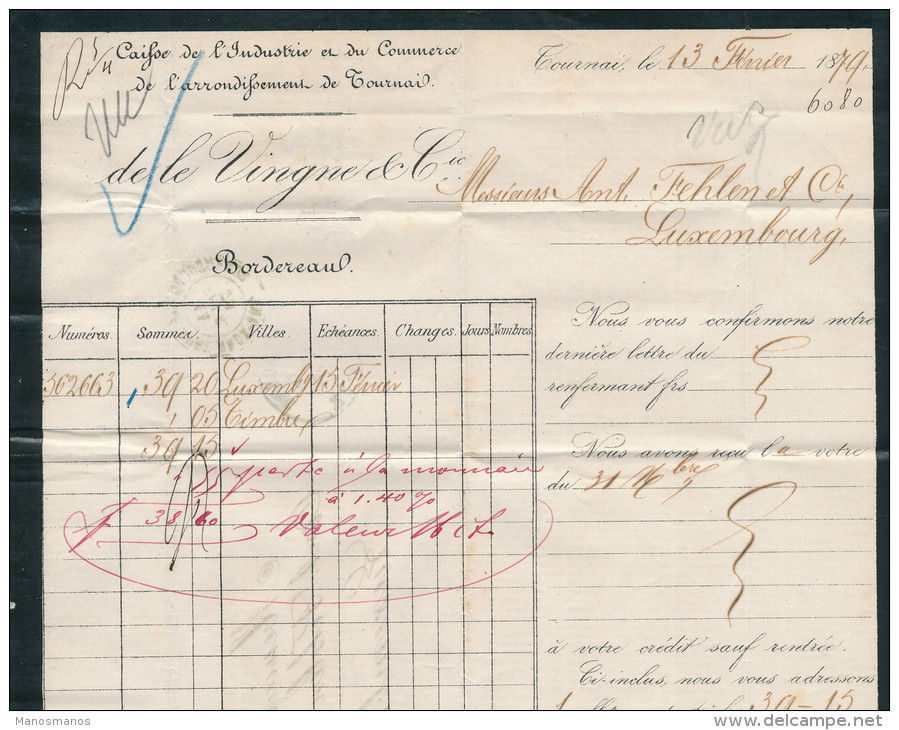 Caisse de l'Industrie et du Commerce
de l'arrondissement de Tournai.
de le Vingne & Cie
Bordereau.
Tournai, le 13 Février 1879.
6080
Messieurs Ant. Fehlen et Cie,
Luxembourg,
Numéros. Sommes. Villes. Echéances. Changes. Jours. Nombres.
562663 39 20 Luxembg 15 Février
05 Timbre
39 15
55 perte à la monnaie
à 1.40 %
f 38 60 Valeur
Nous vous confirmons notre
dernière lettre du
renfermant frs
Nous avons reçu la votre
du 31 Xbre
à votre crédit sauf rentrée.
Ci-inclus, nous vous adressons
39-15
Manosmanos
delcampe.net